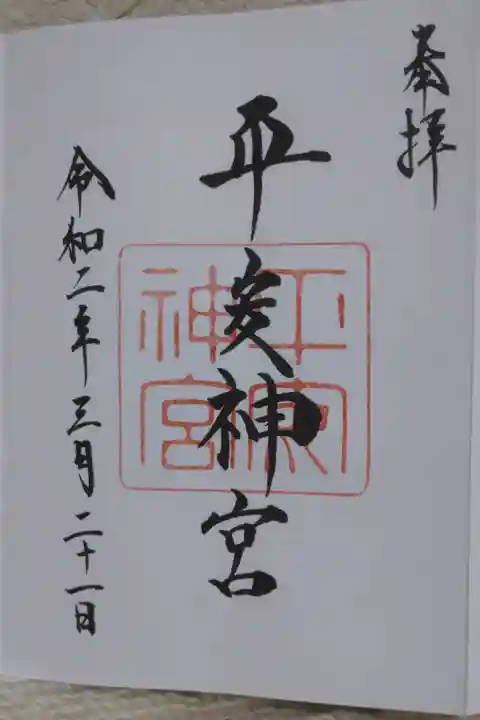 奉拝
平安神宮
令和二年三月二十一日
平安
神宮